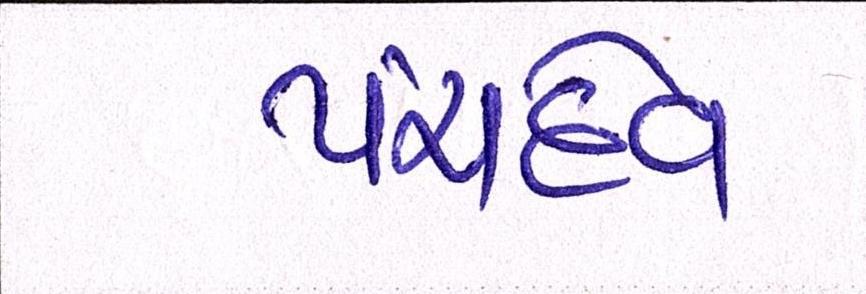 પંચદેવ